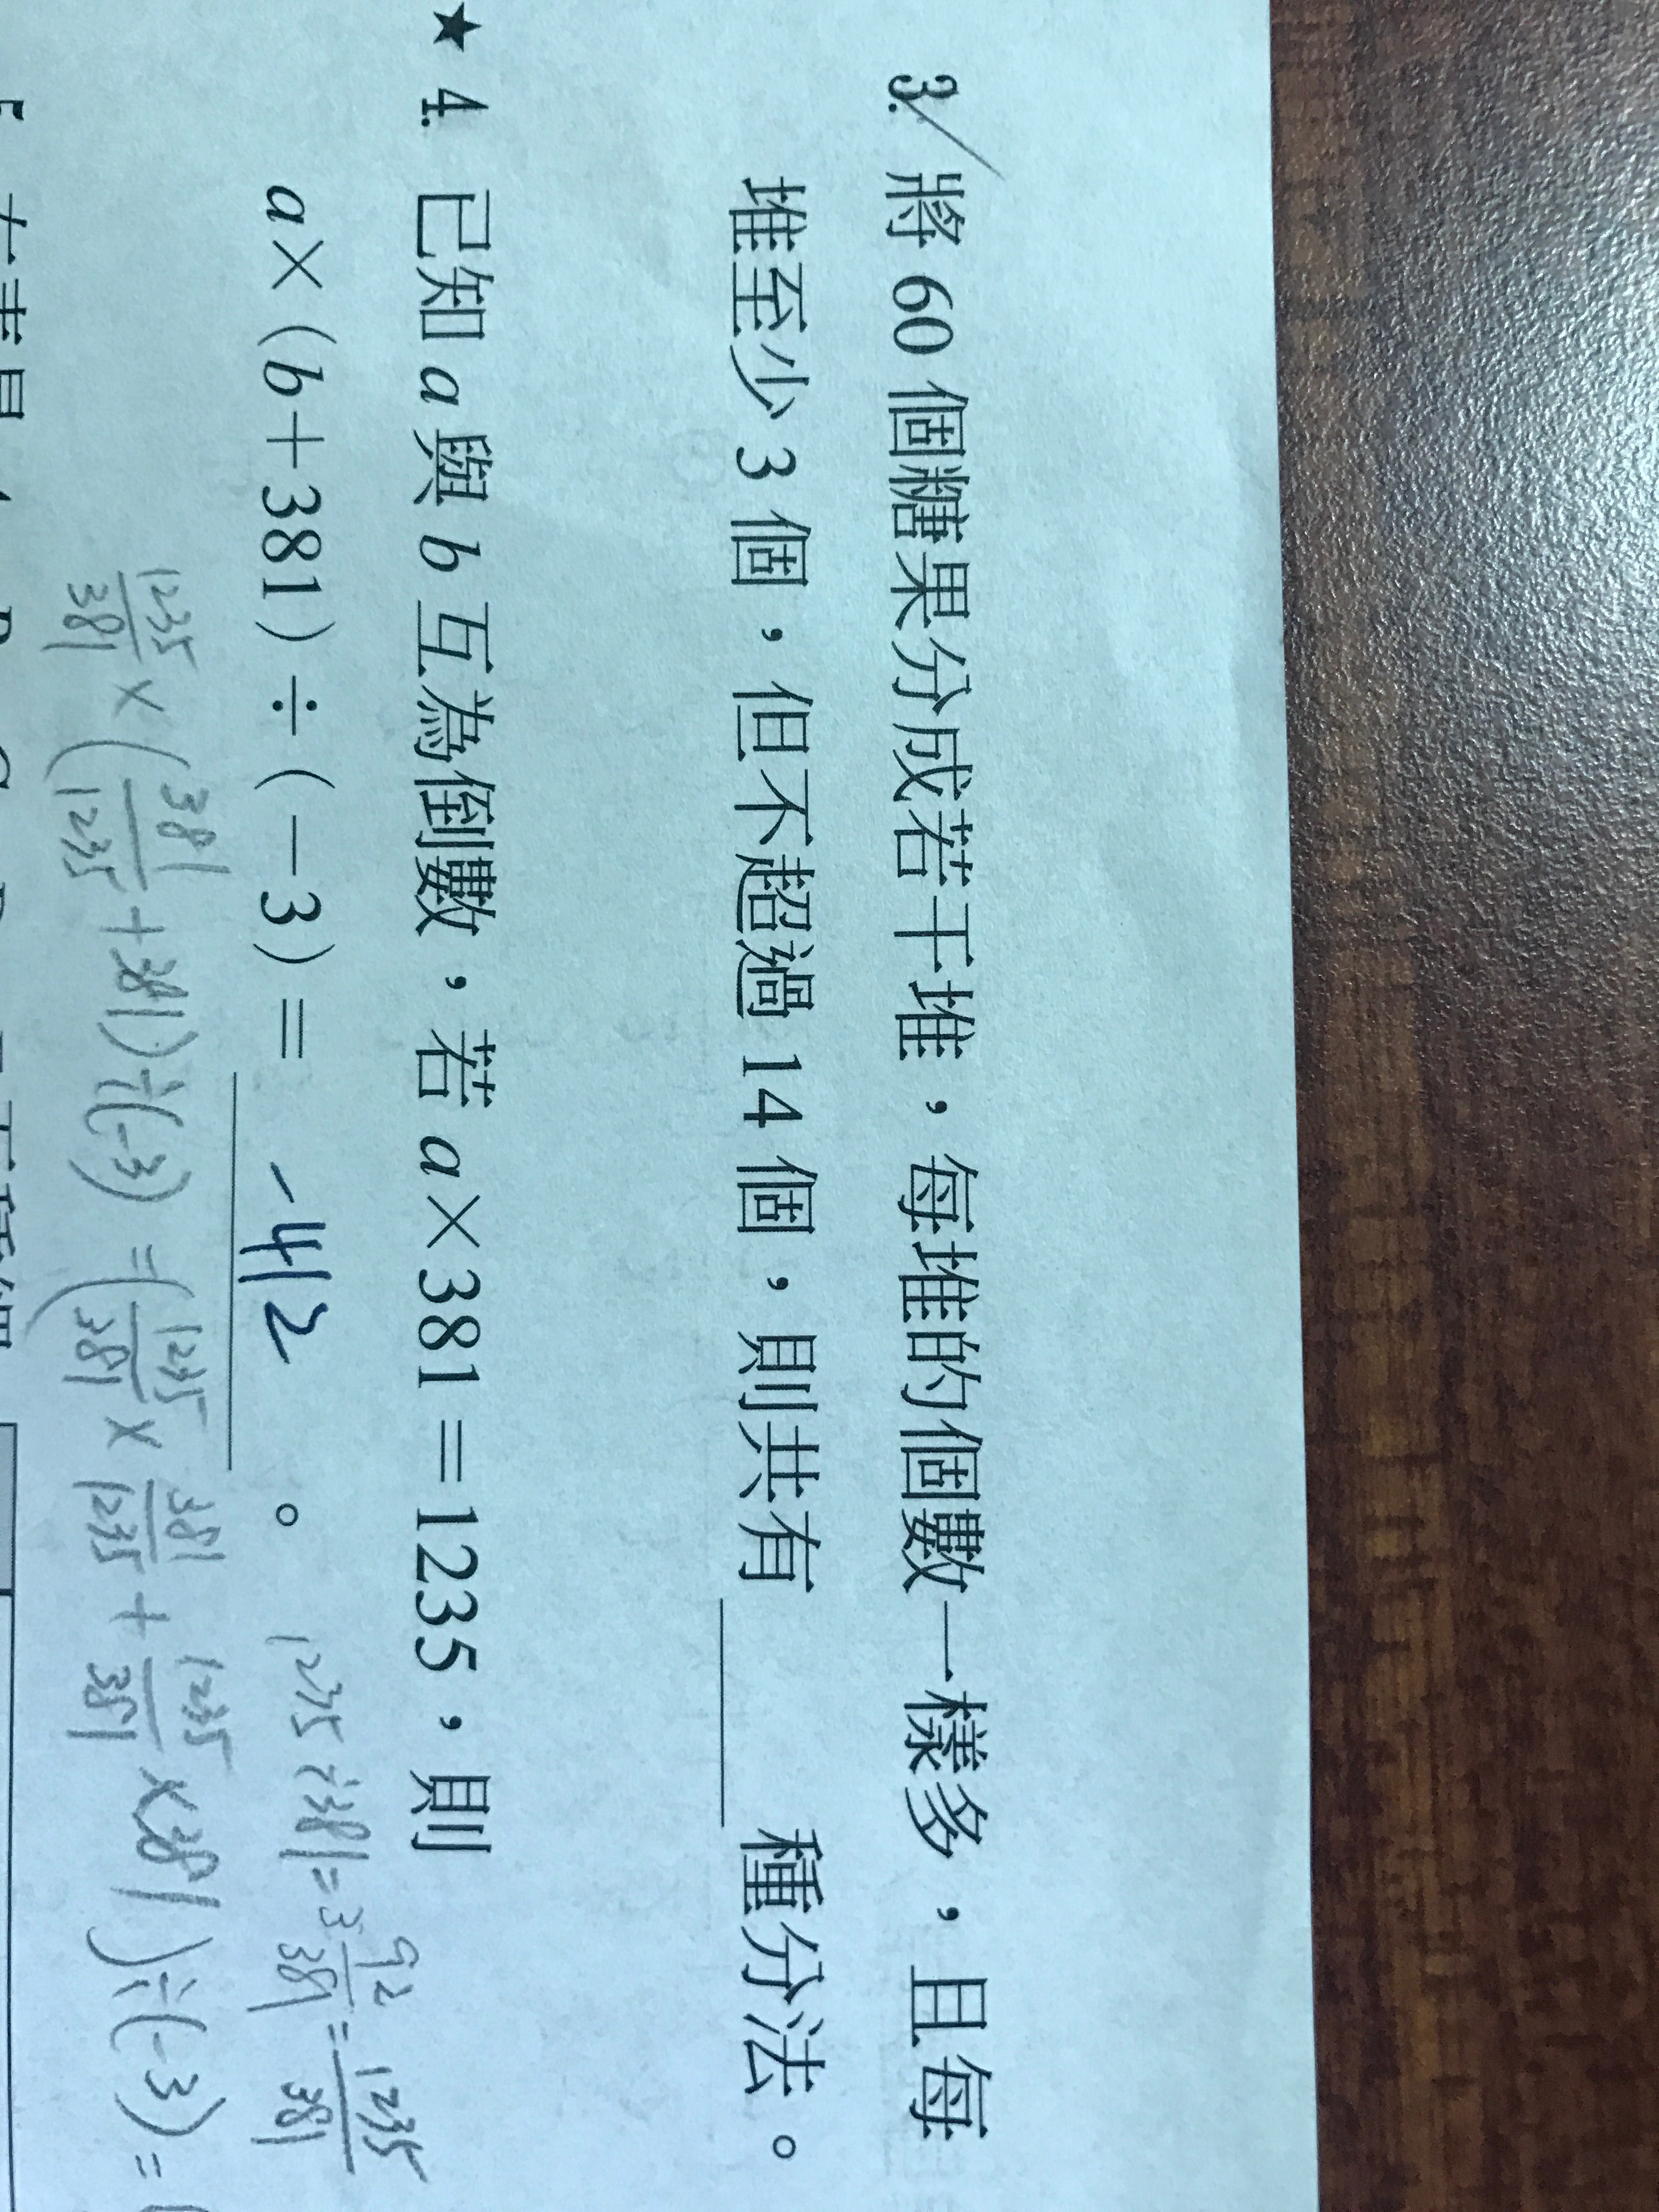 3. 將 60 個糖果分成若干堆，每堆的個數一樣多，且每
堆至少 3 個，但不超過 14 個，則共有____種分法。
★ 4. 已知 a 與 b 互為倒數，若 a×381=1235，則
a×(b+381)÷(-3)= -412 。
1235÷381=3 92/381 = 1235/381
1235/381 × (381/1235 + 381)÷(-3) = (1235/381 × 381/1235 + 1235/381 ×381)÷(-3) =